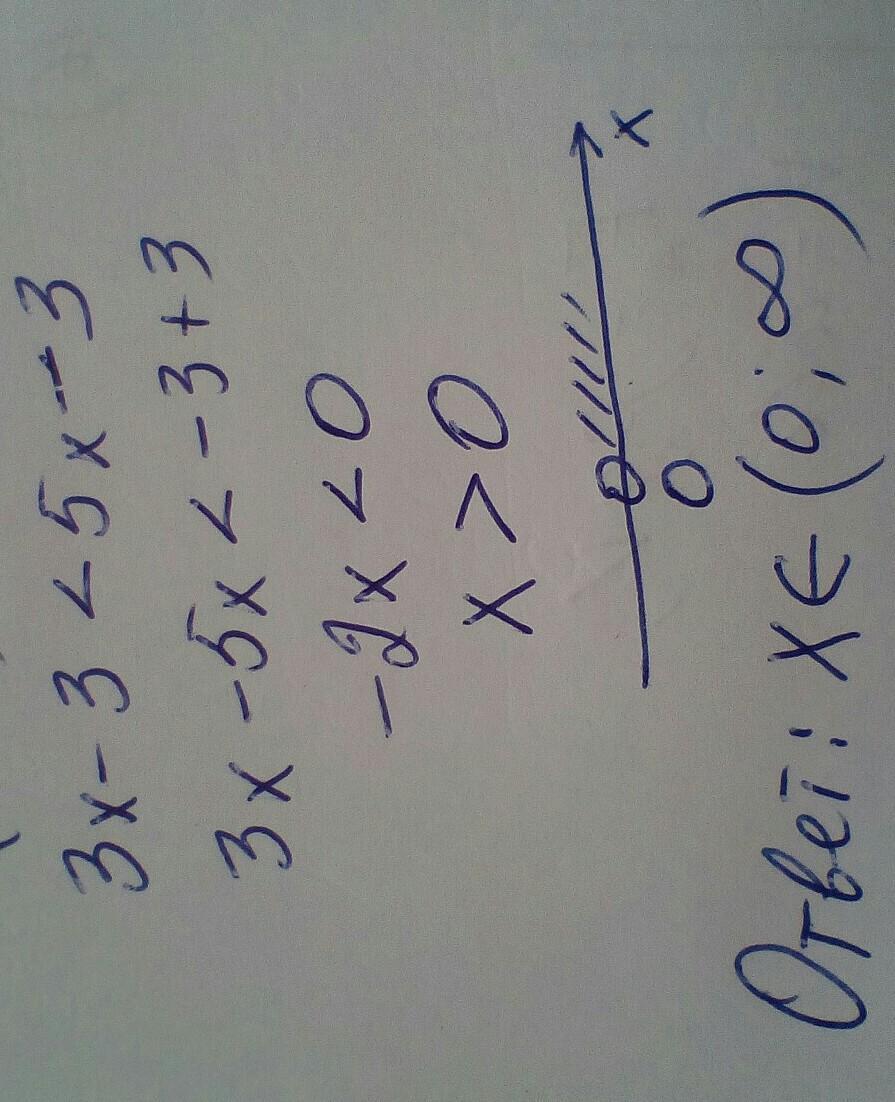 3x - 3 < 5x - 3
3x - 5x < -3 + 3
-2x < 0
x > 0
x
0
Ответ: x ∈ (0; ∞)